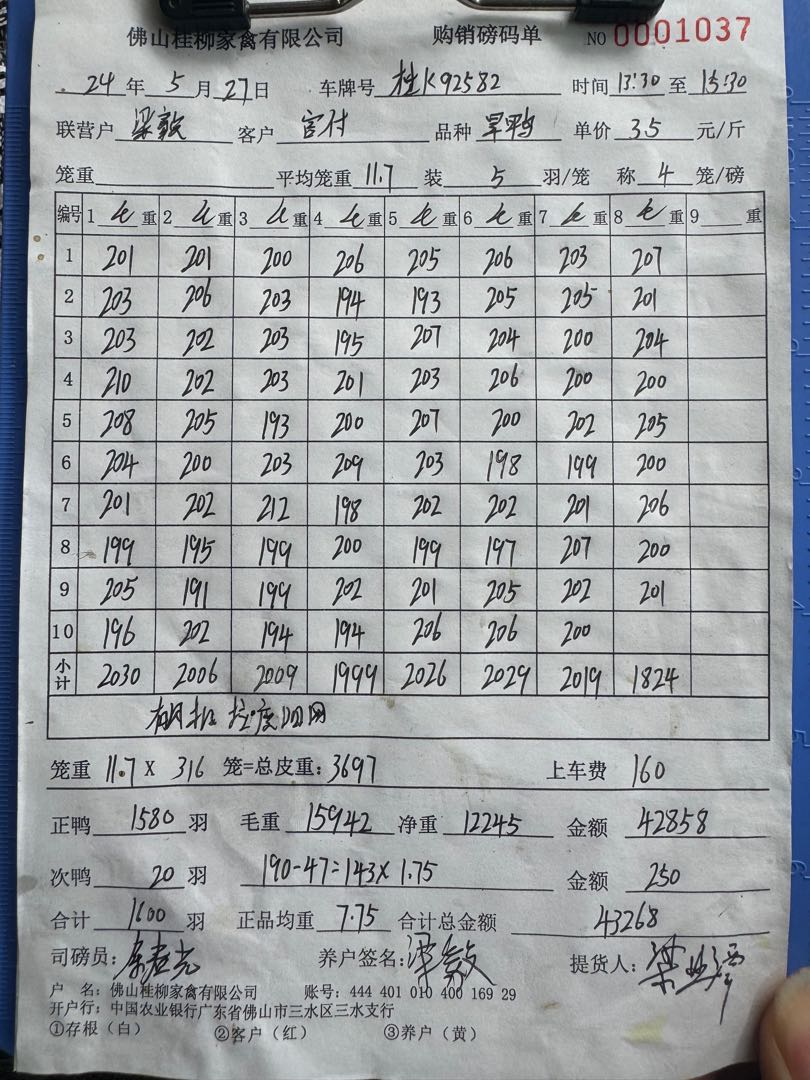 佛山桂柳家禽有限公司 购销磅码单 NO 0001037
24 年 5 月 27 日 车牌号 桂K92582 时间 13:30 至 15:30
联营户 梁敦 客户 官付 品种 旱鸭 单价 3.5 元/斤
笼重 平均笼重 11.7 装 5 羽/笼 称 4 笼/磅
编号 1 毛 重 2 毛 重 3 毛 重 4 毛 重 5 毛 重 6 毛 重 7 毛 重 8 毛 重 9 重
1 201 201 200 206 205 206 203 207
2 203 206 203 194 193 205 205 201
3 203 202 203 195 207 204 200 204
4 210 202 203 201 203 206 200 200
5 208 205 193 200 207 200 202 205
6 204 200 203 209 203 198 199 200
7 201 202 212 198 202 202 201 206
8 199 195 199 200 199 197 207 200
9 205 191 199 202 201 205 202 201
10 196 202 194 194 206 206 200
小计 2030 2006 2009 1999 2026 2029 2019 1824
笼重 11.7 X 316 笼=总皮重: 3697 上车费 160
正鸭 1580 羽 毛重 15942 净重 12245 金额 42858
次鸭 20 羽 190-47=143×1.75 金额 250
合计 1600 羽 正品均重 7.75 合计总金额 43268
司磅员: 养户签名: 提货人:
户 名: 佛山桂柳家禽有限公司 账号: 444 401 010 400 169 29
开户行: 中国农业银行广东省佛山市三水区三水支行
①存根（白） ②客户（红） ③养户（黄）